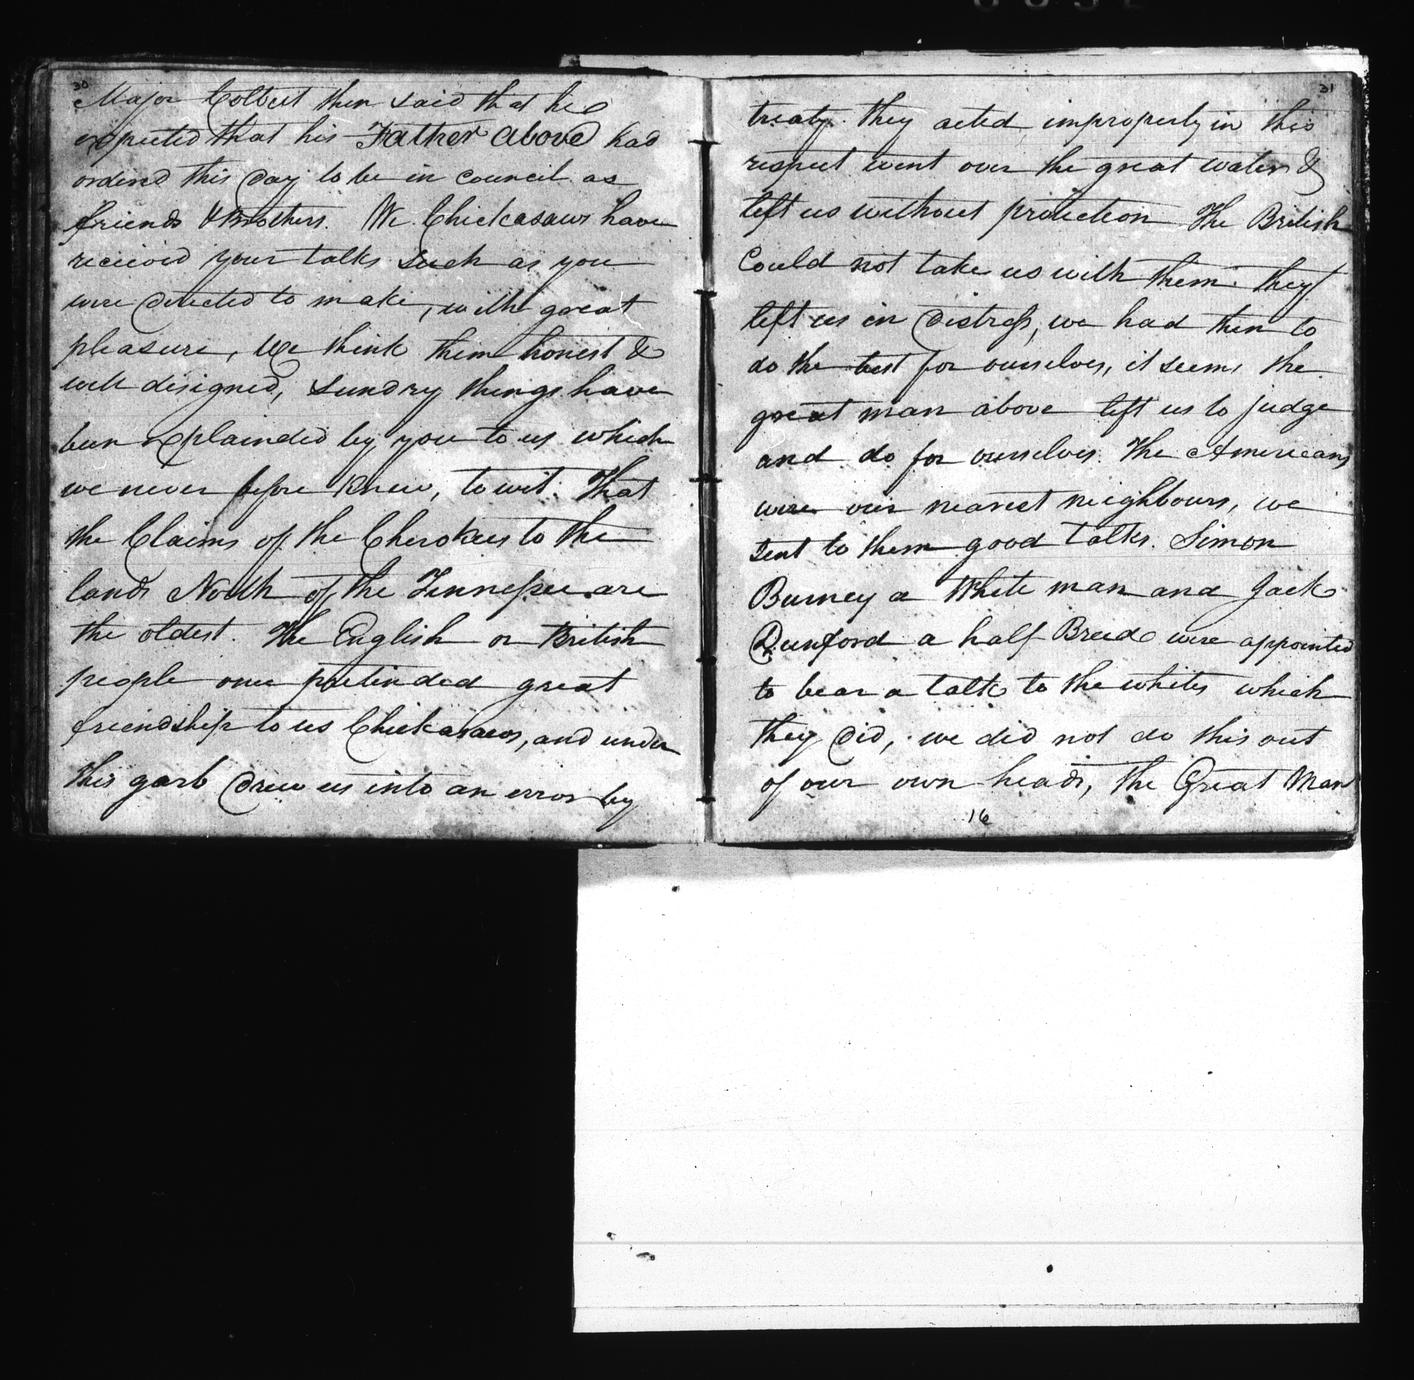 30
Major Colbert then said that he
expected that his Father above had
ordered this day to be in council as
friends & Brothers. We Chickasaws have
received your talks such as you
were directed to make, with great
pleasure, We think them honest &
well designed, sundry things have
been explained by you to us which
we never before knew, to wit. That
the Claims of the Cherokees to the
lands North of the Tennessee are
the oldest. The English or British
people once pretended great
friendship to us Chickasaws, and under
this garb drew us into an error by
31
treaty. they acted improperly in this
respect went over the great water &
left us without protection The British
Could not take us with them. they
left us in distress, we had then to
do the best for ourselves, it seems the
great man above left us to judge
and do for ourselves. The Americans
were our nearest neighbours, we
sent to them good talks. Simon
Burney a White man and Jack
Dunford a half Breed were appointed
to bear a talk to the whites which
they did, we did not do this out
of our own heads, the Great Man
16